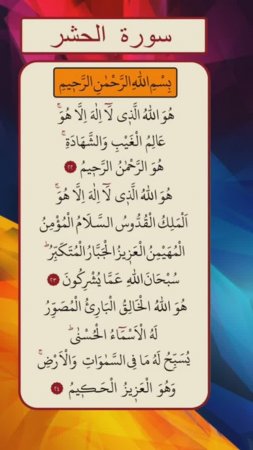 سورة الحشر
بِسْمِ اللهِ الرَّحْمٰنِ الرَّحٖيمِ
هُوَ اللهُ الَّذٖى لَٓا اِلٰهَ اِلَّا هُوَۚ
عَالِمُ الْغَيْبِ وَالشَّهَادَةِۚ
هُوَ الرَّحْمٰنُ الرَّحٖيمُ ٢٢
هُوَ اللهُ الَّذٖى لَٓا اِلٰهَ اِلَّا هُوَۚ
اَلْمَلِكُ الْقُدُّوسُ السَّلَامُ الْمُؤْمِنُ
الْمُهَيْمِنُ الْعَزٖيزُ الْجَبَّارُ الْمُتَكَبِّرُؕ
سُبْحَانَ اللهِ عَمَّا يُشْرِكُونَ ٢٣
هُوَ اللهُ الْخَالِقُ الْبَارِئُ الْمُصَوِّرُ
لَهُ الْاَسْمَٓاءُ الْحُسْنٰىؕ
يُسَبِّحُ لَهُ مَا فِى السَّمٰوَاتِ وَالْاَرْضِۚ
وَهُوَ الْعَزٖيزُ الْحَكٖيمُ ٢٤